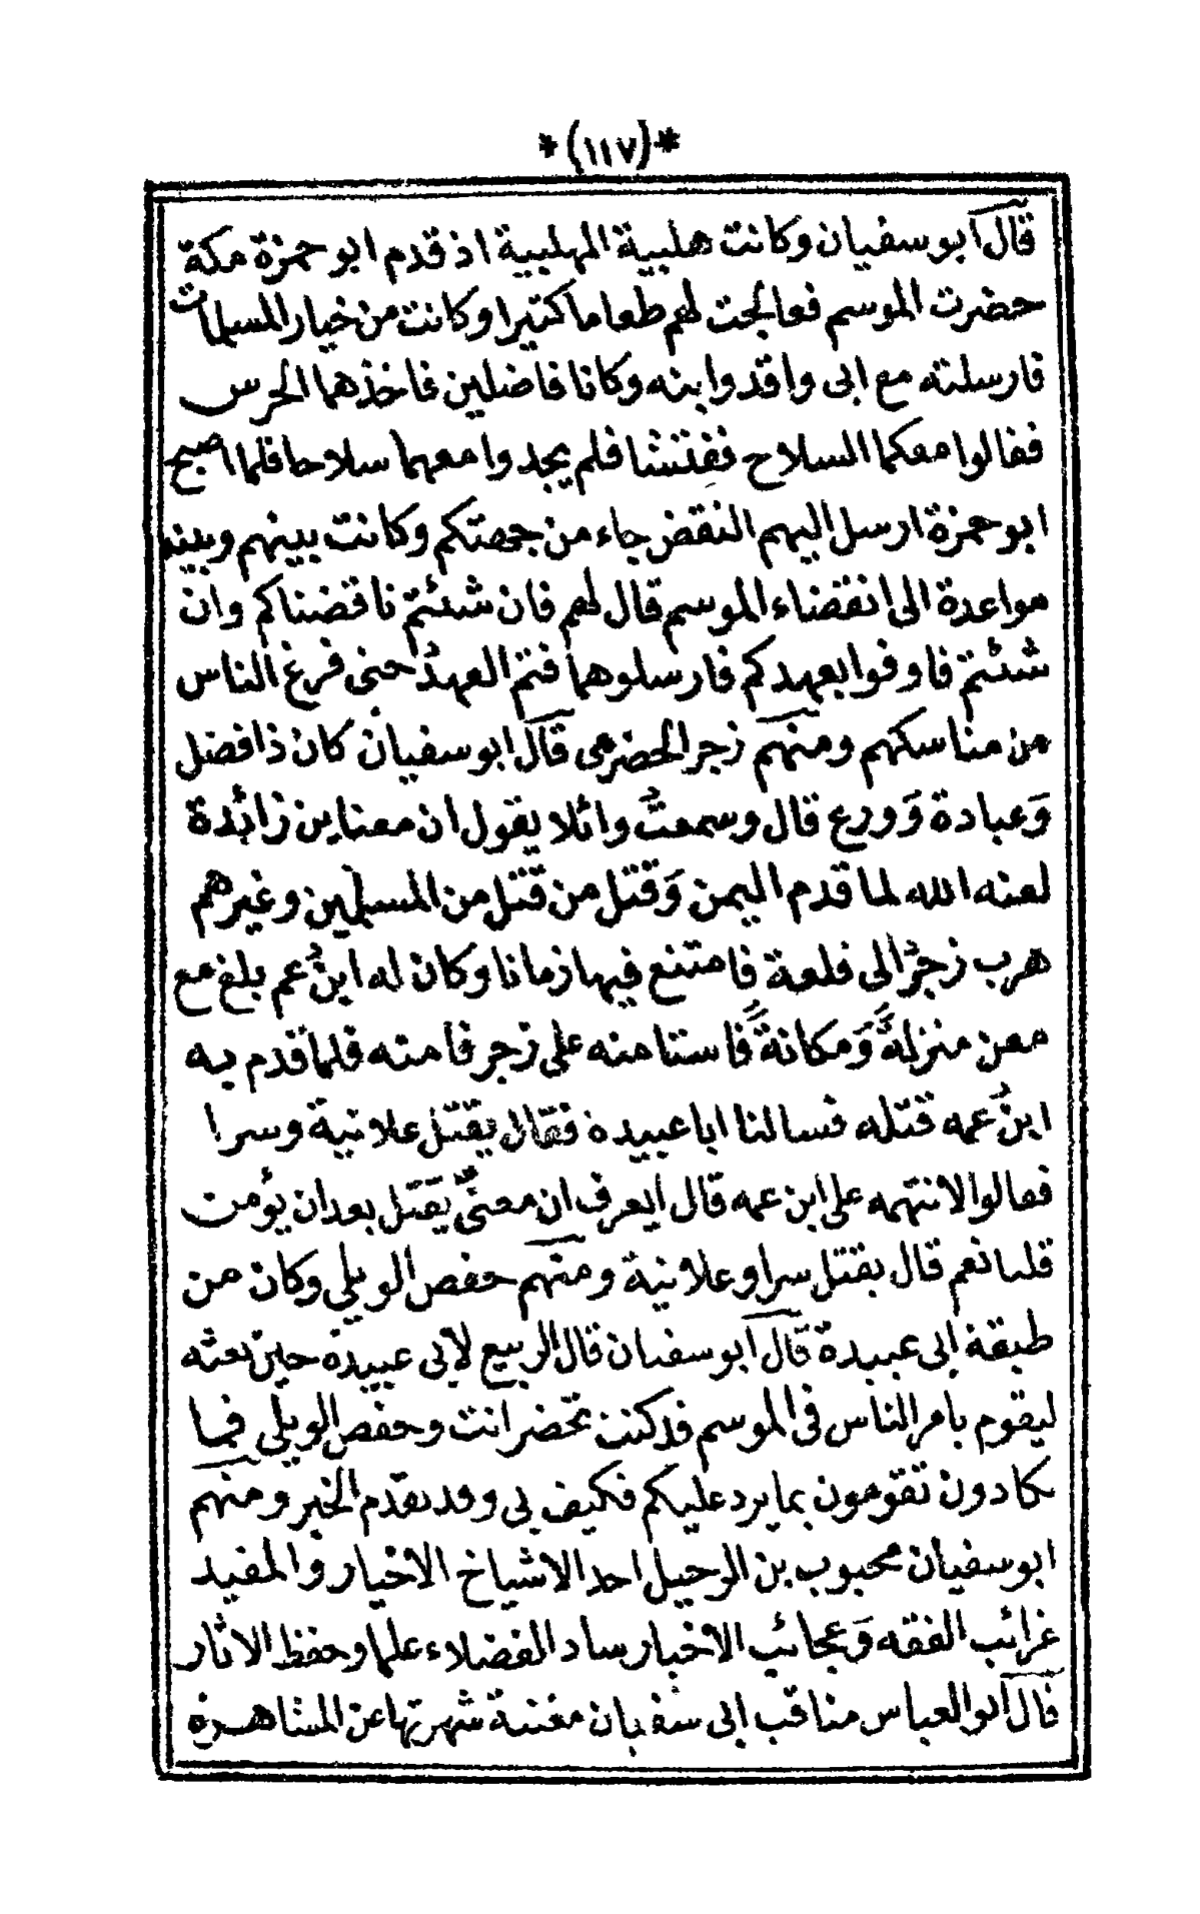 *(١١٧)*
قال ابو سفيان وكانت هلبية المهلبية اذ قدم ابو حمزة مكة
حضرت الموسم فعالجت لهم طعاما كثيرا وكانت من خيار المسلمات
فارسلته مع ابى واقد وابنه وكانا فاضلين فاخذهما الحرس
فقالوا معكما السلاح ففتشا فلم يجدوا معهما سلاحا فلما اصبح
ابو حمزة ارسل اليهم النقض جاء من جهتكم وكانت بينهم وبينه
مواعدة الى انقضاء الموسم قال لهم فان شئتم ناقضناكم وان
شئتم فاوفوا بعهدكم فارسلوهما فتم العهد حتى فرغ الناس
من مناسكهم ومنهم زجر الحضرمى قال ابو سفيان كان ذا فضل
وَعبادة وَورع قال وسمعتُ وائلا يقول ان معنا بن زائدة
لعنه الله لما قدم اليمن وَقتل من قتل من المسلمين وغيرهم
هرب زجرٌ الى قلعة فامتنع فيها زمانا وكان له ابنُ عم بلغ مع
معن منزلةً وَمكانةً فَاستامنه على زجر فامنه فلما قدم به
ابنُ عمه قتله فسالنا ابا عبيدة فقال يقتل علانية وسرا
فقالوا لانتهمه على ابن عمه قال ايعرف ان معنىً يقتل بعد ان يؤمن
قلنا نعم قال يقتل سرا وعلانية ومنهم حفص الويلي وكان من
طبقة ابى عبيدة قال ابو سفيان قال الربيع لابى عبيدة حين بعثه
ليقوم بامر الناس فى الموسم قد كنت تحضر انت وحفص الويلى فما
تكادون تقومون بما يرد عليكم فكيف بى وقد تقدم الخبر ومنهم
ابو سفيان محبوب بن الرحيل احد الاشياخ الاخيار والمفيد
غرائب الفقه وَعجائب الاخبار ساد الفضلاء علما وحفظ الاثار
قال ابو العباس مناقب ابى سفيان مغنية شهرتها عن المشاهدة